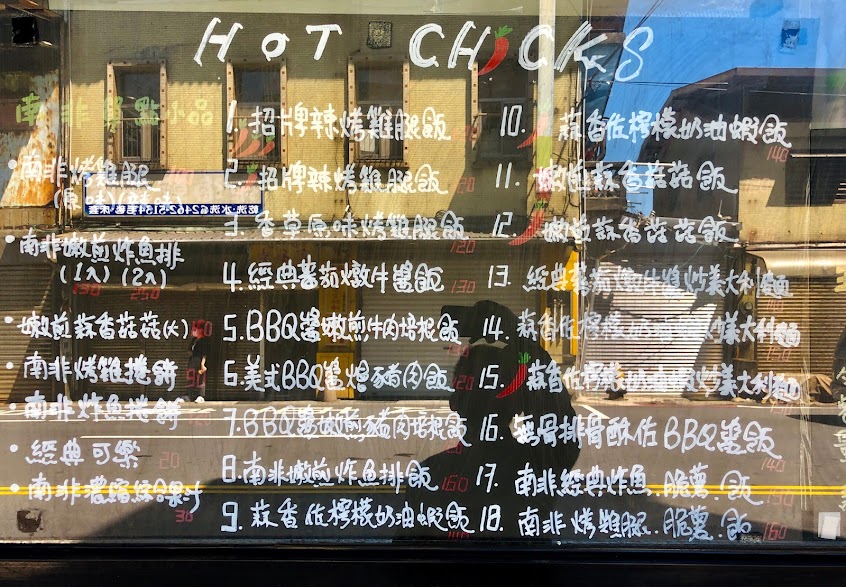 HOT CHICKS
南非異點小品
• 南非烤雞腿
(原味)(辣味)
• 南非嫩煎炸魚排
(1入)(2入)
250
• 嫩煎蒜香菇菇(大)
• 南非烤雞捲餅
90
• 南非炸魚捲餅
• 經典可樂
20
• 南非濃縮綜合果汁
30
1. 招牌辣烤雞腿飯
2. 招牌辣烤雞腿飯 120
3. 香草原味烤雞腿飯
120
4. 經典蕃茄燉牛醬飯
130
5. BBQ醬嫩煎牛肉培根飯
6. 美式BBQ醬爆豬肉飯
120
7. BBQ醬嫩煎豬肉培根飯
8. 南非嫩煎炸魚排飯
160
9. 蒜香佐檸檬奶油蝦飯
10. 蒜香佐檸檬奶油蝦飯
140
11. 嫩煎蒜香菇菇飯
12. 嫩煎蒜香菇菇飯
13. 經典蕃茄燉牛醬炒義大利麵
14. 蒜香佐檸檬
15. 蒜香佐檸檬
16. 無骨排骨酥佐BBQ醬飯
140
17. 南非經典炸魚..脆薯.飯
18. 南非烤雞腿..脆薯.飯
160
乾洗・水洗